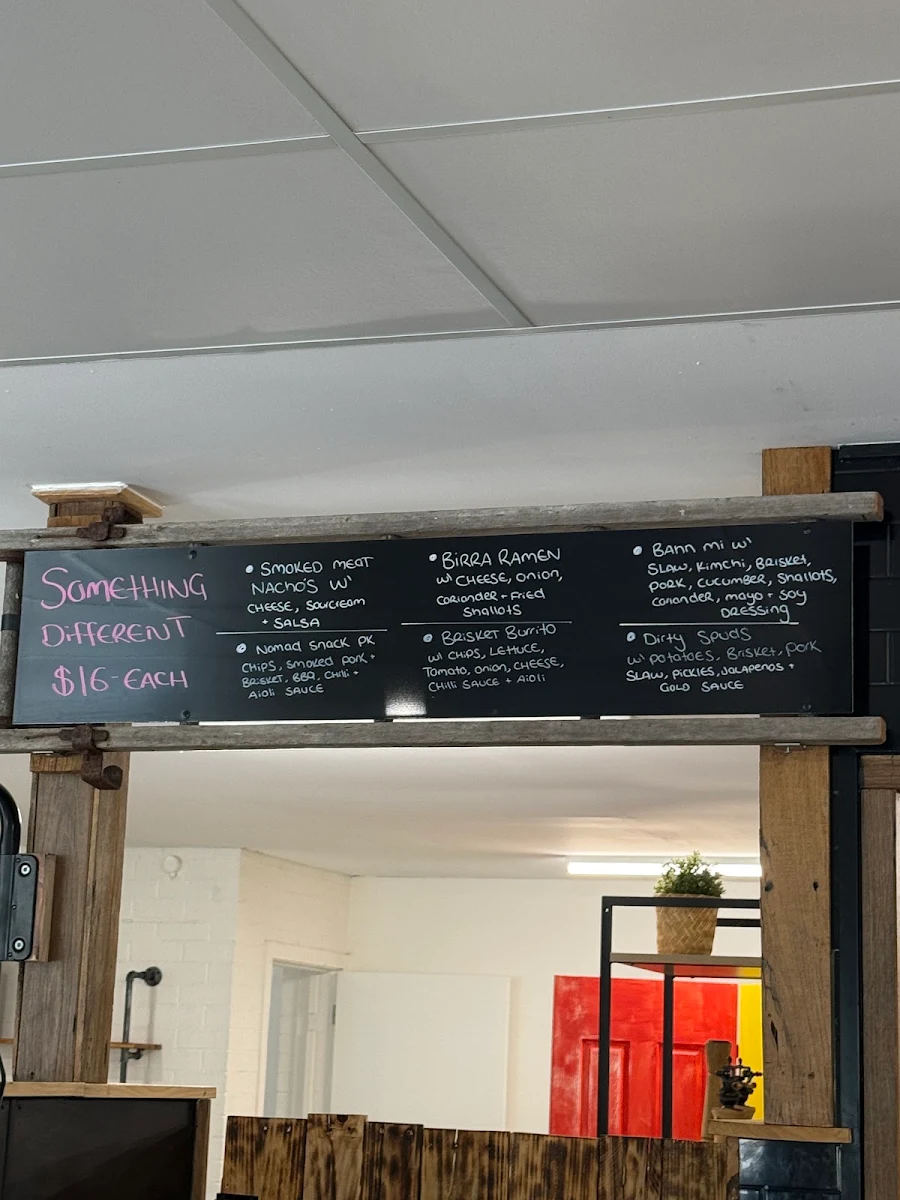 SOMETHING
DIFFERENT
$16-EACH
• SMOKED MEAT
NACHO'S W/
CHEESE, SOURCREAM
+ SALSA
• NOMAD SNACK PK
CHIPS, SMOKED PORK +
BRISKET, BBQ, CHILLI +
AIOLI SAUCE
• BIRRA RAMEN
W/ CHEESE, ONION,
CORIANDER + FRIED
SHALLOTS
• BRISKET BURRITO
W/ CHIPS, LETTUCE,
TOMATO, ONION, CHEESE,
CHILLI SAUCE + AIOLI
• BAHN MI W/
SLAW, KIMCHI, BRISKET,
PORK, CUCUMBER, SHALLOTS,
CORIANDER, MAYO + SOY
DRESSING
• DIRTY SPUDS
W/ POTATOES, BRISKET, PORK
SLAW, PICKLES, JALAPENOS +
GOLD SAUCE